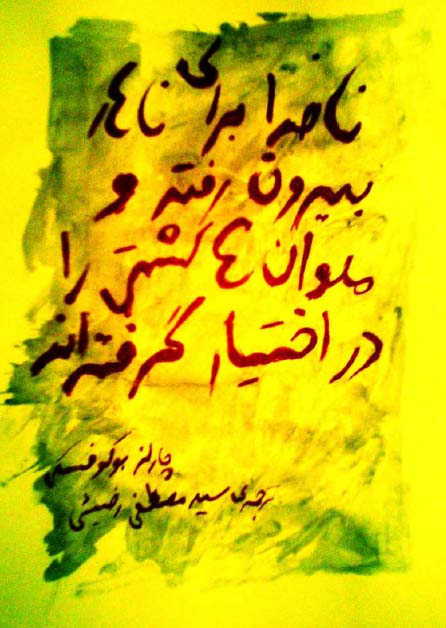 ناخدا برای ناهار
بیرون رفته و
ملوان ها کشتی را
در اختیار گرفته اند
چارلز بوکوفسکی
ترجمه‌ی سید مصطفی رضیئی